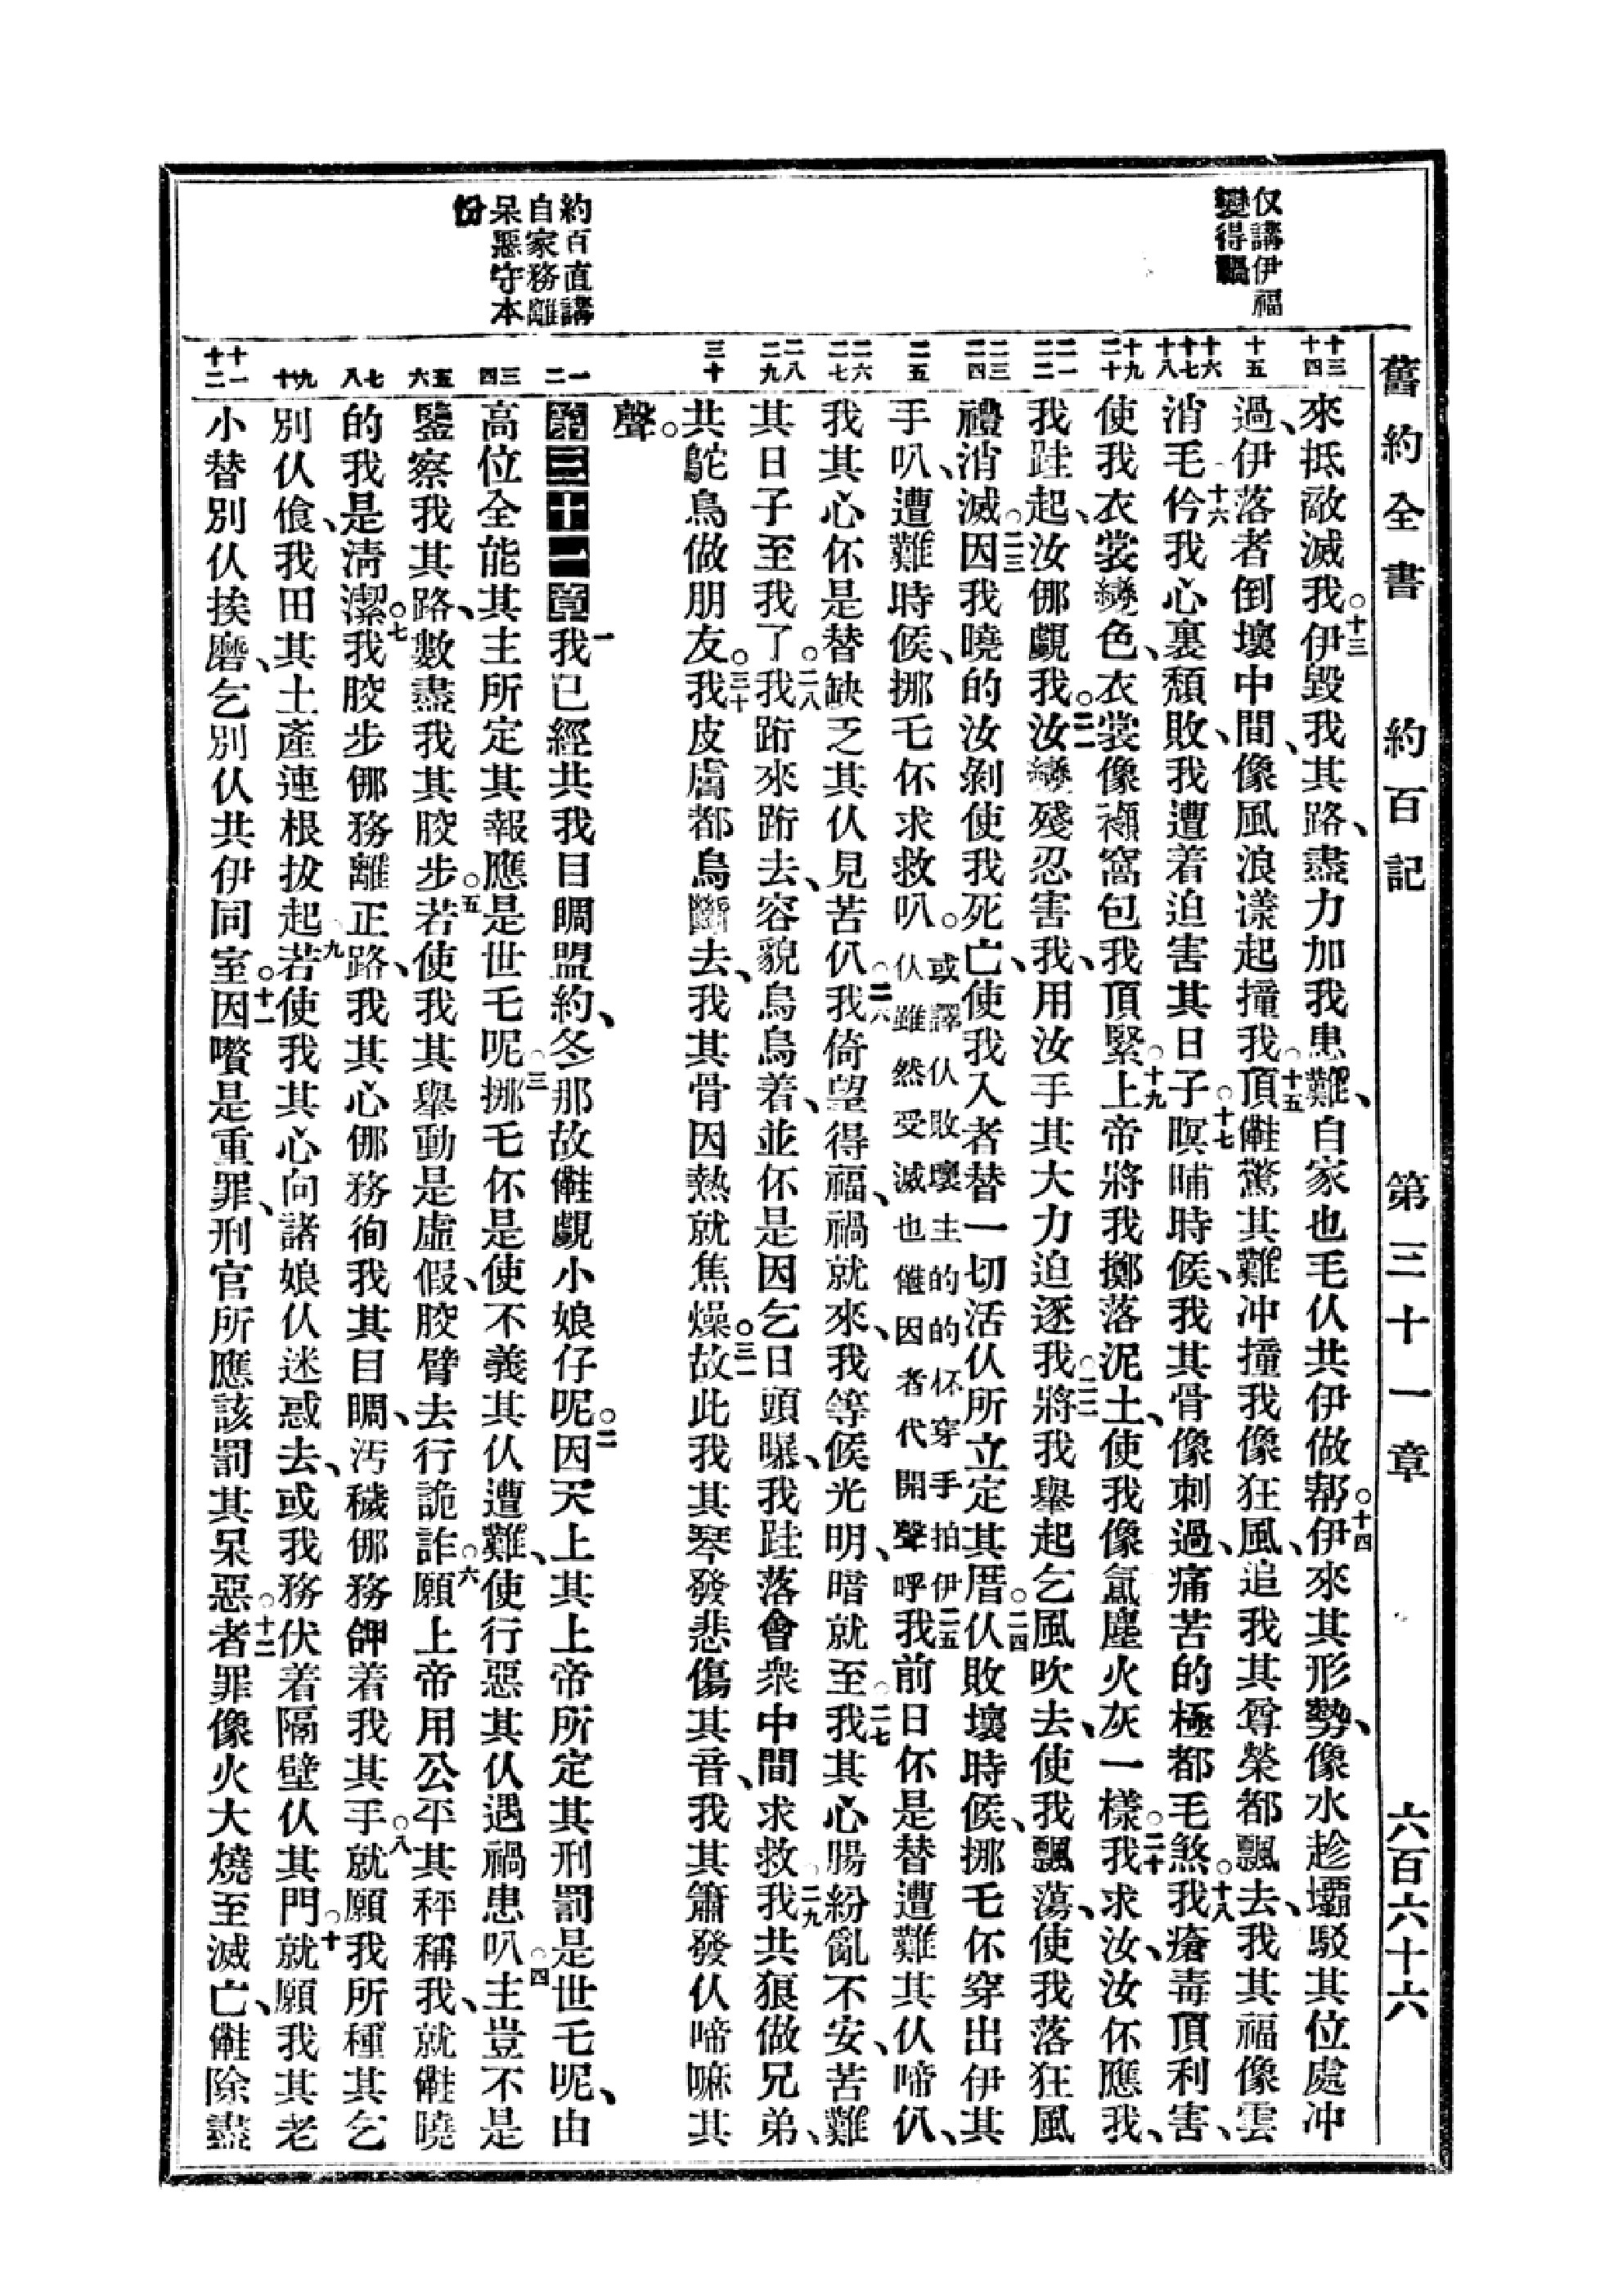 舊約全書 約百記 第三十一章 六百六十六
仅講伊福
變得禍
約百直講
自家務離
呆惡守本
份
十三
十四
十五
十六
十七
十八
十九
二十
二一
二二
二三
二四
二五
二六
二七
二八
二九
三十
一
二
三
四
五
六
七
八
九
十
十一
十二
來抵敵滅我。十三伊毀我其路、盡力加我患難、自家也毛仈共伊做帮。十四伊來其形勢、像水趁壩駁其位處冲
過、伊落者倒壞中間、像風浪漾起撞我。十五頂㑚驚其難冲撞我像狂風、追我其尊榮都飄去、我其福像雲
消毛。十六仱我心裏頹敗、我遭着迫害其日子。十七暝晡時候、我其骨像刺過、痛苦的極都毛煞。十八我瘡毒頂利害、
使我衣裳變色、衣裳像襰窩包我頂緊。十九上帝將我擲落泥土、使我像坌塵火灰一樣。二十我求汝、汝伓應我、
我跬起、汝㑚覷我。二一汝變殘忍害我、我用汝手其大力迫逐我。二二將我舉起乞風吹去、使我飄蕩、使我落狂風
禮消滅。二三因我曉的汝剝使我死亡、使我入者替一切活仈所立定其厝。二四仈敗壞時候、挪乇伓穿出伊其
手叭、遭難時候、挪乇伓求救叭。或譯仈敗壞主的的的伓穿手拍伊仈雖然受滅也㒑因者代開聲呼二五我前日伓是替遭難其仈啼仈、
我其心伓是替缺乏其仈見苦仈。二六我倚望得福、禍就來、我等候光明、暗就至。二七我其心腸紛亂不安、苦難
其日子至我了。二八我跬來跬去、容貌烏烏着、並伓是因乞日頭曝、我跬落會衆中間求救。二九我共狼做兄弟、
共鴕鳥做朋友。三十我皮膚都烏斷去、我其骨因熱就焦燥。三一故此我其琴發悲傷其音、我其簫發仈啼嘛其
聲。
第三十一章一我已經共我目睭盟約、冬那故㒑覷小娘仔呢。二因天上其上帝所定其刑罰是世乇呢、由
高位全能其主所定其報應是世乇呢。三挪乇伓是使不義其仈遭難、使行惡其仈遇禍患叭。四主豈不是
鑒察我其路、數盡我其胶步。五若使我其舉動是虛假、胶臂去行詭詐。六願上帝用公平其秤稱我、就㒑曉
的我是淸潔。七我胶步㑚務離正路、我其心㑚務徇我其目睭、汚穢㑚務𬦰着我其手。八就願我所種其乞
別仈飡、我田其土產連根拔起。九若使我其心向諸娘仈迷惑去、或我務伏着隔壁仈其門。十就願我其老
小替別仈挨磨、乞別仈共伊同室。十一因囋是重罪、刑官所應該罰其呆惡。十二者罪像火大燒至滅亡、㒑除盡